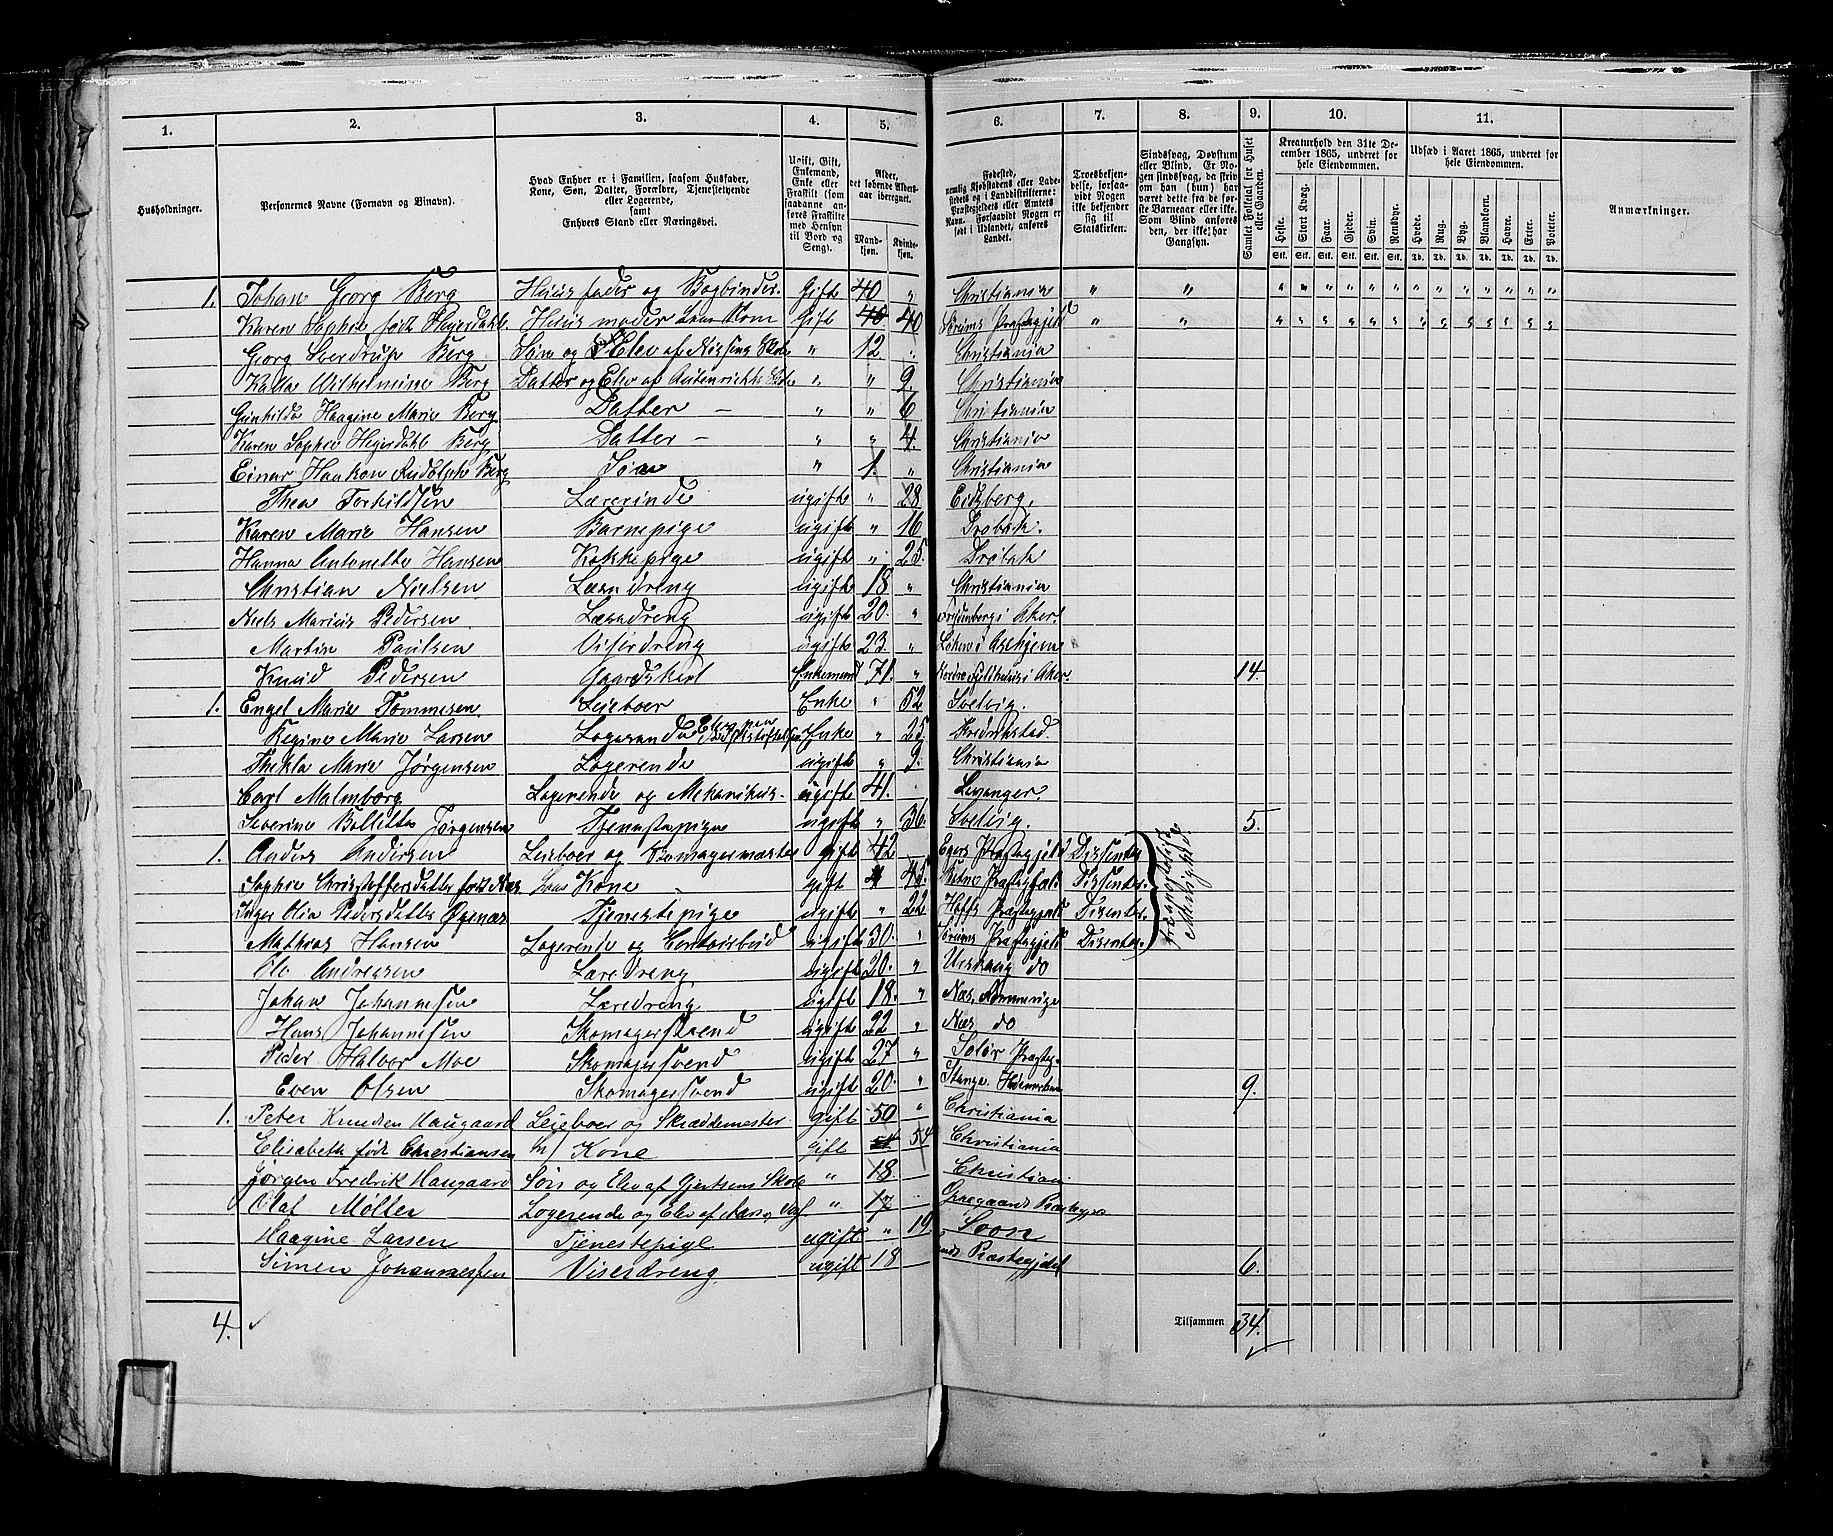 1. 2. 3. 4. 5. 6. 7. 8. 9. 10. 11.
Husholdninger. Personernes Navne (Fornavn og Binavn). Hvad Enhver er i Familien, saasom Husfader, Kone, Søn, Datter, Forældre, Tjenestetyende eller Logerende, samt Enhvers Stand eller Næringsvei. Ugift, Gift, Enkemand, Enke eller Fraskilt (som saadanne anføres Fraskilte med Hensyn til Bord og Seng). Alder, det løbende Aldersaar iberegnet. Mandkjøn. Kvindekjøn. Fødested, nemlig Kjøbstadens eller Ladestedets og i Landdistrikterne: Præstegjeldets eller Amtets Navn. Forsaavidt Nogen er født i Udlandet, anføres Landet. Troesbekjendelse, forsaavidt Nogen ikke bekjender sig til Statskirken. Sindssvag, Døvstum eller Blind. Er Nogen sindssvag, da skrives om han (hun) har været dette fra de første Barneaar eller ikke. Som Blind anføres den, der ikke har Gangsyn. Samlet Folketal for Huset eller Gaarden. Kreaturhold den 31te December 1865, underet for hele Eiendommen. Heste. Stort Kvæg. Faar. Gjeder. Svin. Rensdyr. Udsæd i Aaret 1865, underet for hele Eiendommen. Hvede. Rug. Byg. Blandkorn. Havre. Erter. Poteter. Anmærkninger.
Stk. Stk. Stk. Stk. Stk. Stk. Td. Td. Td. Td. Td. Td. Td.
1. Johan Georg Berg Huusfader og Bogbinder. Gift 40 " Christiania " " " " " " " " " " " " " " "
Karen Sophie født Hejerdahl. Huusmoder Gift 40 40 Sørums Præstegjeld " " " " " " " " " " " " " " "
Georg Sverdrup Berg Søn og Elev af Nissens Skole " 12 " Christiania
Kaia Wilhelmine Berg Datter og Elev af Autenrieths Skole " " 9. Christiania
Gunhilda Haagine Marie Berg Datter – " " 6 Christiania
Karen Sophie Hejerdahl Berg Datter – " " 4. Christiania
Einar Haakon Rudolph Berg Søn " 1. " Christiania
Thea Torkildsen Lærerinde ugift " 28 Eidsberg.
Karen Marie Hansen Barnepige ugift " 16 Drøbak.
Hanna Antonette Hansen Kokkepige ugift " 25. Drøbak
Christian Nielsen Læredreng ugift 18 " Christiania
Niels Marius Pedersen Læredreng ugift 20. " i Aker.
Martin Paulsen Viserdreng ugift 23. "
Knud Pedersen Gaardskarl Enkemand 71. " i Aker. 14.
1. Engel Marie Tommesen. Leieboer Enke " 52 Svelvig.
Regine Marie Larsen Logerende Elev paa Enke " 25. Fredrikstad
Thekla Marie Jørgensen Logerende ugift " 9. Christiania
Carl Malmborg Logerende og Mekanikus. ugift 41. Levanger.
Severine Bollette Jørgensen Tjenestepige ugift " 36. Svelvig. 5.
1. Anders Andersen Leieboer og Skomagermester gift 42 Egers Præstegjeld Dissenter frieapostolisk Menighed.
Sophie Christoffersdatter født Næs Kone gift 45. Præstegjeld. Dissenter.
Inger Olia Pedersdatter Øgenæs Tjenestepige ugift " 22 Hoffs Præstegjeld Disenter.
Mathias Hansen Logerende og Contoirbud ugift 30. " Sørums Præstegjeld Disenter.
Ole Andresen Læredreng ugift 20. " Urskoug do
Johan Johannesen Læredreng ugift 18. " Næs, Rommerige
Hans Johannesen Skomagersvend ugift 22 " Næs do
Peder Halvor Moe Skomagersvend ugift 27 " Solør Præsteg.
Even Olsen Skomagersvend ugift 20. " Stange Hedemarken 9.
1. Peter Knudsen Haugaard Leieboer og Skræddemester gift 50 " Christiania
Elisabeth født Christiansen h/ Kone gift 54 54 Christiania
Jørgen Fredrik Haugaard Søn og Elev af Gjertsens Skole " 18 Christiani
Olaf Møller Logerende og Elev af " 17
Haagine Larsen Tjenestepige ugift " 19. Soon
Simen Johannessen Viserdreng ugift 18 Præstegjeld 6.
4. Tilsammen 34.